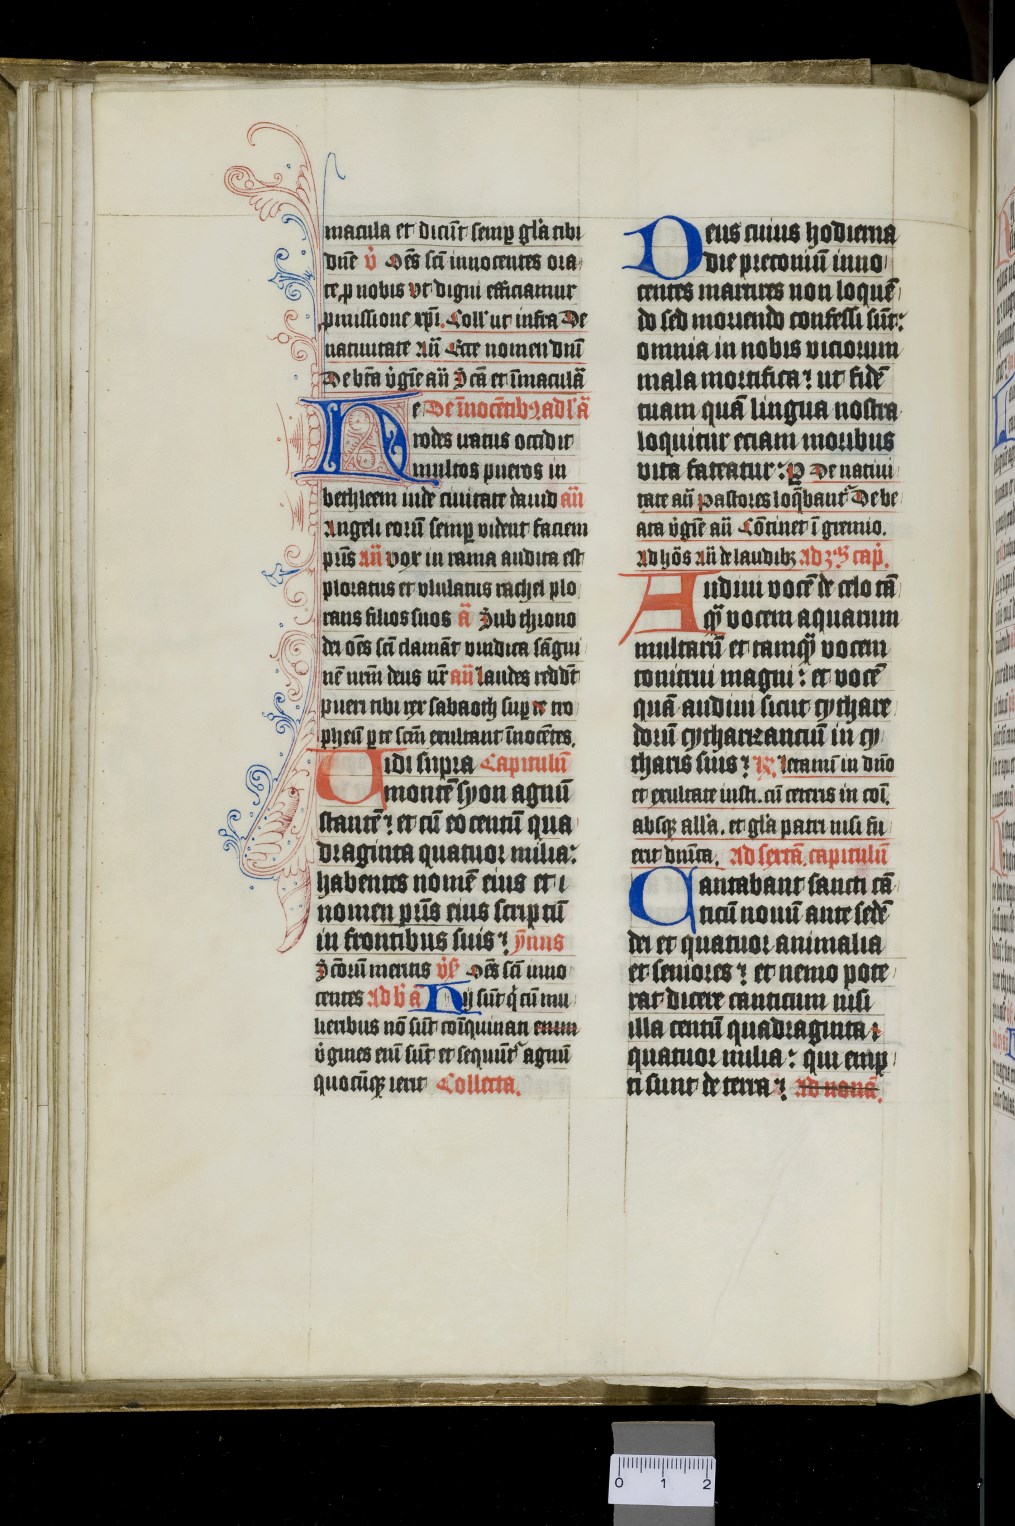 macula et dicūt semp̱ gl̄a tibi
dn̄e v̄ Oēs scī innocentes ora
te ꝓ nobis vt digni efficiamur
ꝓmissione xp̄i. Coll' ut infra De
natiuitate Añ Ecce nomen dn̄i
De bt̄a v̇gīe añ Scā et īmaculā
He De īnocētibꝫ ad lā
rodes iratus occidit
multos pueros in
bethleem iude ciuitate dauid añ
Angeli eorū semp̱ vident faciem
pr̄is Añ vox in rama audita est
ploratus et vlulatus rachel plo
rans filios suos ā Sub throno
dei oēs scī clamāt vindica sāgui
nē nr̄m deus nr̄ añ laudes reddūt
pueri tibi rex sabaoth sup̱ te tro
pheū p̱te scm̄ exultant īnocētes.
Uidi supra Capitulū
montē syon agnū
stantē? et cū eo centū qua
draginta quatuor milia:
habentes nomē eius et i
nomen pr̄is eius scriptū
in frontibus suis? ȳmns
Scōrū meritis v̇s̄ Oēs scī inno
centes Ad bā Hij sūt q̇ cū mu
lieribus nō sūt coīquinati enim
v̇gines enī sūt et sequūt' agnū
quocūqꝫ ierit Collecta.
Deus cuius hodierna
die preconiū inno
centes martires non loquē
do sed moriendo confessi sūt:
omnia in nobis viciorum
mala mortifica? ut fidē
tuam quā lingua nostra
loquitur eciam moribus
vita fateatur: P De natiui
tate añ Pastores loq̄bant' De be
ata v̇gīe añ Cōtinet ī gremio.
Ad hōs Añ de laudibꝫ Ad 3ᵃ cap̄.
Audiui vocē de celo tā
qꝫ̄ vocem aquarum
multarū et tamqꝫ̄ vocem
tonitrui magni: et vocē
quā audiui sicut cythare
dorū cytharizanciū in cy
tharis suis? R̄ Letamī in dn̄o
et exultate iusti. cū ceteris in coī.
absqꝫ all'a. et gl̄a patri nisi fū
erit dn̄ica. Ad sextā. capitulū
Cantabant sancti cā
ticū nouū ante sedē
dei et quatuor animalia
et seniores? et nemo pote
rat dicere canticum nisi
illa centū quadraginta?
quatuor milia: qui emp
ti sunt de terra? Ad nonā.
0 1 2